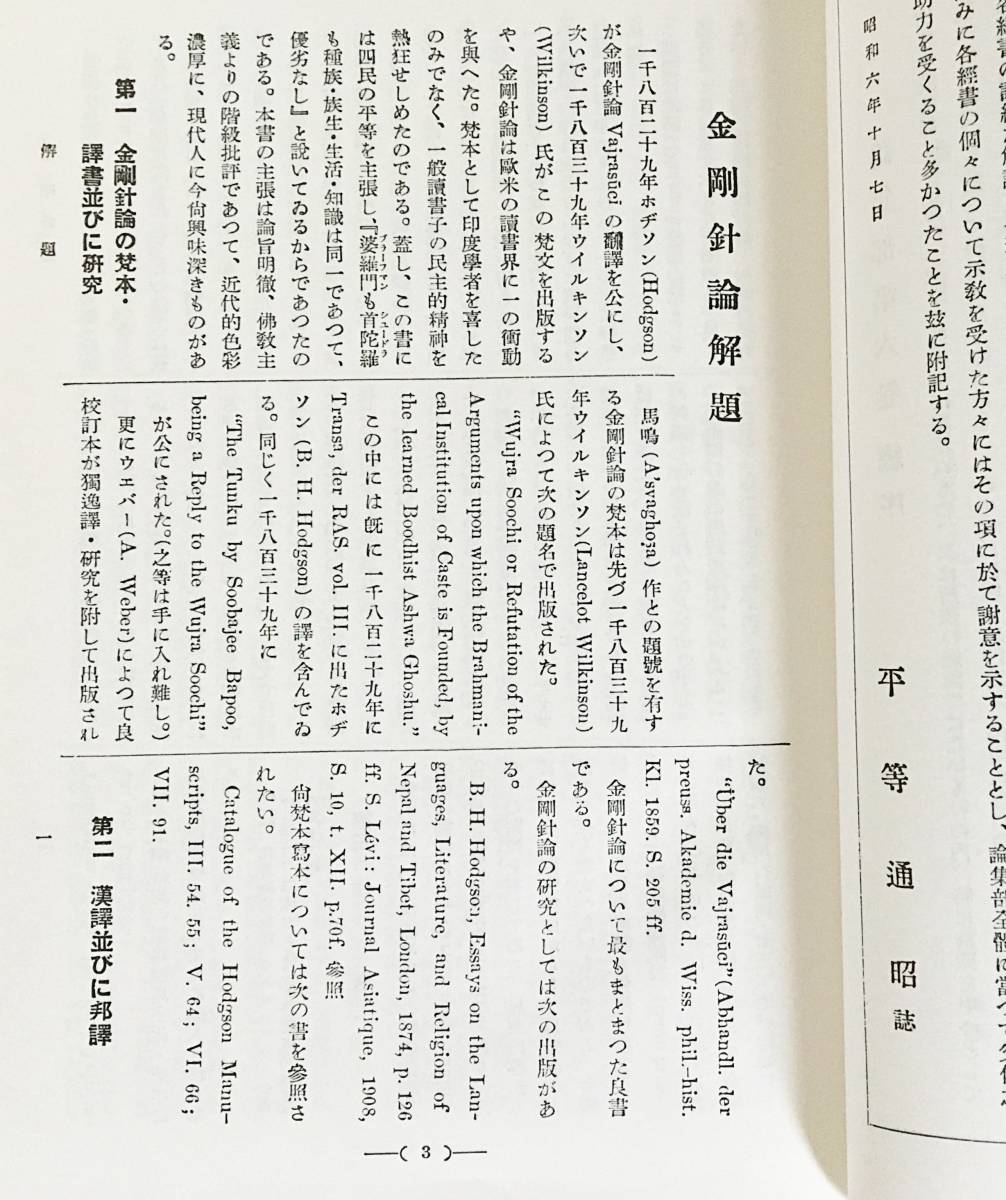 各經書の
みに各經書の個々について示敎を受けた方々にはその項に於て謝意を示することとし、論集部全體に當つて
助力を受くること多かつたことを玆に附記する。
昭和六年十月七日
平等通昭誌
金剛針論解題
一千八百二十九年ホヂソン(Hodgson)
が金剛針論 Vajrasūci の飜譯を公にし、
次いで一千八百三十九年ウイルキンソン
(Wilkinson) 氏がこの梵文を出版する
や、金剛針論は歐米の讀書界に一の衝動
を與へた。梵本として印度學者を喜した
のみでなく、一般讀書子の民主的精神を
熱狂せしめたのである。蓋し、この書に
は四民の平等を主張し、『婆羅門も首陀羅
ブラーフマン シュードラ
も種族・族生・生活・知識は同一であつて、
優劣なし』と說いてゐるからであつたの
である。本書の主張は論旨明徹、佛敎主
義よりの階級批評であつて、近代的色彩
濃厚に、現代人に今尙興味深きものがあ
る。
第一 金剛針論の梵本・
譯書並びに硏究
馬鳴 (A'svaghoṣa) 作との題號を有す
る金剛針論の梵本は先づ一千八百三十九
年ウイルキンソン(Lancelot Wilkinson)
氏によつて次の題名で出版された。
"Wujra Soochi or Refutation of the
Arguments upon which the Brāhmani-
cal Institution of Caste is Founded, by
the learned Boodhist Ashwa Ghoshu."
この中には旣に一千八百二十九年に
Transa, der RAS. vol. III. に出たホヂ
ソン (B. H. Hodgson) の譯を含んでゐ
る。同じく一千八百三十九年に
"The Tunku by Soobajee Bapoo,
being a Reply to the Wujra Soochi"
が公にされた。(之等は手に入れ難し。)
更にウェバー(A. Weber)によつて良
校訂本が獨逸譯・硏究を附して出版され
た。
"Über die Vajrasūci"(Abhandl. der
preuss. Akademie d. Wiss. phil.-hist.
Kl. 1859. S. 205 ff.
金剛針論について最もまとまつた良書
である。
金剛針論の硏究としては次の出版があ
る。
B. H. Hodgson, Essays on the Lan-
guages, Literature, and Religion of
Nepal and Tibet, London, 1874, p. 126
ff. S. Lévi: Journal Asiatique, 1908,
S. 10, t. XII. p.70f. 參照
尙梵本寫本については次の書を參照さ
れたい。
Catalogue of the Hodgson Manu-
scripts, III. 54. 55; V. 64; VI. 66;
VII. 91.
第二 漢譯並びに邦譯
解題
一
( 3 )